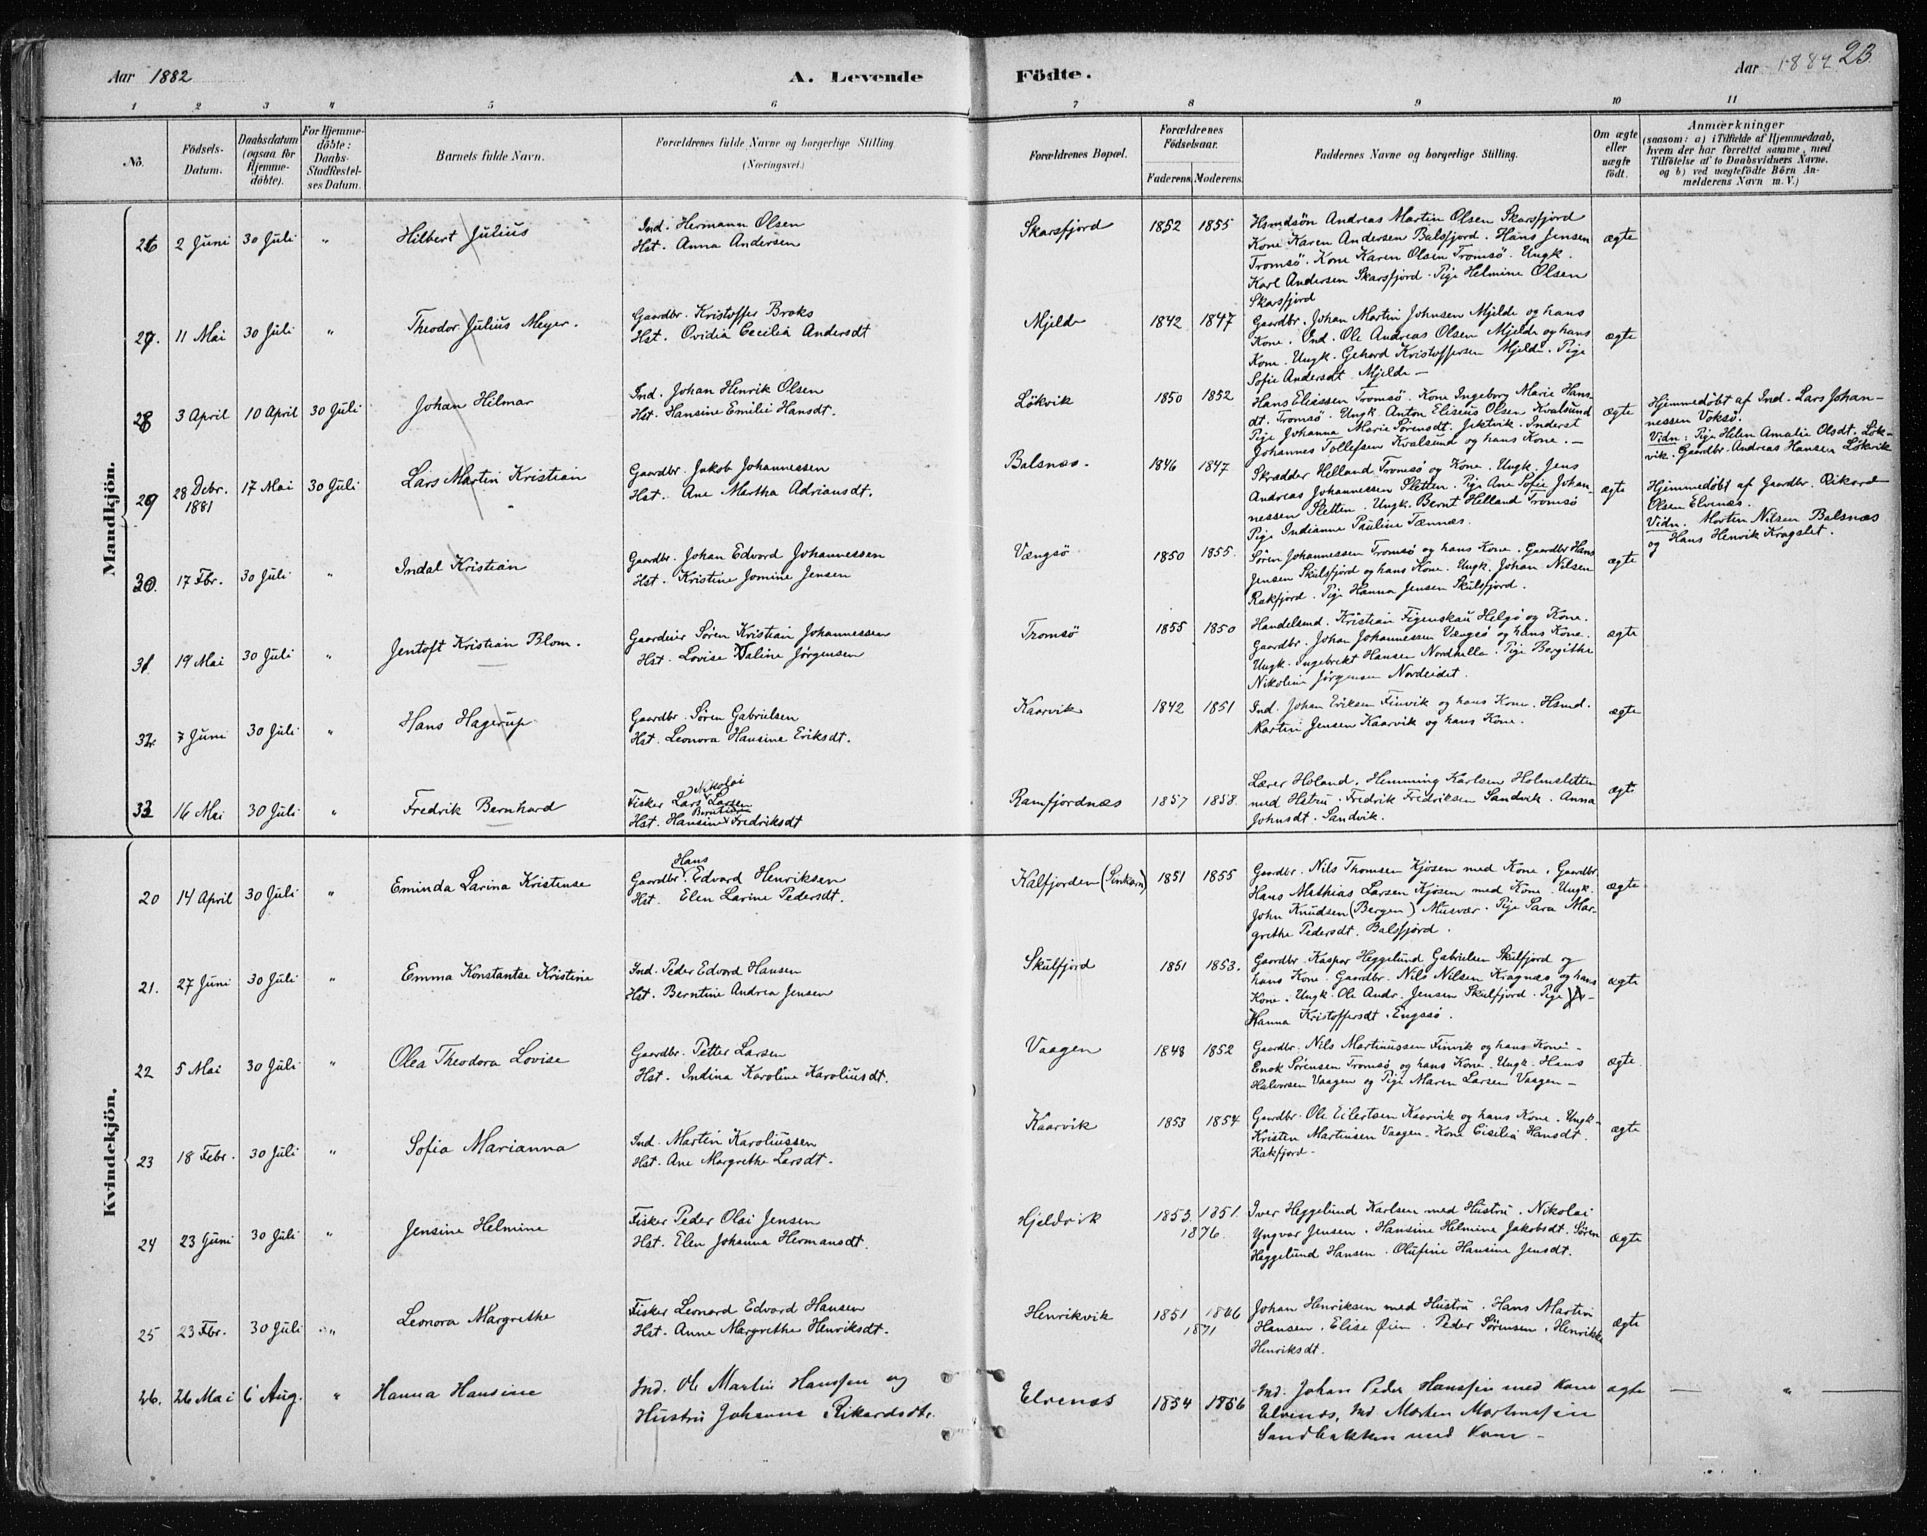 Aar 1882
A. Levende
Födte.
Aar 1882
23.
1
2
3
4
5
6
7
8
9
10
11
No.
Födsels-
Datum.
Daabsdatum
(ogsaa for
Hjemme-
döbte).
For Hjemme-
döbte:
Daabs-
Stadfæstel-
ses Datum.
Barnets fulde Navn.
Forældrenes fulde Navne og borgerlige Stilling
(Næringsvei.)
Forældrenes Bopæl.
Forældrenes
Födselsaar.
Faderens.
Moderens.
Faddernes Navne og borgerlige Stilling.
Om ægte
eller
uægte
födt.
Anmærkninger
(saasom: a) i Tilfælde af Hjemmedaab,
hvem der har forrettet samme, med
Tilföielse af to Daabsvidners Navne.
og b) ved uægtefödte Börn An-
melderens Navn m. V.)
Mandkjön.
26 2 Juni 30 Juli " Hilbert Julius
Ind. Hermann Olsen
Hst. Anna Andersen
Skarsfjord 1852 1855
Hsmdsön Andreas Martin Olsen Skarsfjord
Kone Karen Andersen Balsfjord. Hans Jensen
Tromsö. Kone Karen Olsen Tromsö. Ungk.
Karl Andersen Skarsfjord. Pige Helmine Olsen
Skarsfjord
ægte
27. 11 Mai 30 Juli " Theodor Julius Meyer.
Gaardbr. Kristoffer Broks
Hst. Ovidia Cecilia Andersdt
Mjelde 1842 1847
Gaardbr. Johan Martin Johnsen Mjelde og hans
Kone. Ind. Ole Andreas Olsen Mjelde og hans
Kone. Ungk. Gehard Kristoffersen Mjelde. Pige
Sofie Andersdt. Mjelde –
ægte
28 3 April 10 April 30 Juli Johan Hilmar
Ind. Johan Henrik Olsen
Hst. Hansine Emilie Hansdt.
Lökvik 1850 1852
Hans Eliassen Tromsö. Kone Ingeborg Marie Hans-
dt. Tromsö. Ungk. Anton Eliseus Olsen Kvalsund
Pige Johanna Marie Sörensdt. Jektvik. Inderst
Johannes Tollefsen Kvalsund og hans Kone. –
ægte
Hjemmedöbt af Ind. Lars Johan-
nessen Voksö.
Vidn: Pige Helen Amalie Olsdt. Lök-
vik. Gaardbr. Andreas Hansen Lökvik
29 28 Debr. 1881 17 Mai 30 Juli Lars Martin Kristian
Gaardbr. Jakob Johannessen
Hst. Ane Martha Adriansdt.
Balsnæs. 1846 1847
Skrædder Helland Tromsö og Kone. Ungk. Jens
Andreas Johannessen Sletten. Pige Ane Sofie Johan-
nessen Sletten. Ungk. Bernt Helland Tromsö
Pige Indianne Pauline Tænnæs.
ægte
Hjemmedöbt af Gaardbr. Rikard
Olsen Elvenæs.
Vidn. Morten Nilsen Balsnæs
og Hans Henrik Kragslet.
30. 17 Fbr. 30 Juli " Indal Kristian
Gaardbr. Johan Edvard Johannessen
Hst. Kristine Jomine Jensen
Vængsö 1850 1855.
Sören Johannessen Tromsö og hans Kone. Gaardbr Hans
Jensen Skulsfjord og hans Kone. Ungk. Johan Nilsen
Rakfjord. Pige Hanna Jensen Skulsfjord.
ægte
31 19 Mai 30 Juli " Jentoft Kristian Blom.
Gaardeier Sören Kristian Johannessen
Hst. Lovise Valine Jörgensen
Tromsö 1855 1850
Handelsmd. Kristian Figenskau Helgö og Kone.
Gaardbr. Johan Johannessen Vængsö og hans Kone.
Ungk. Ingebrekt Hansen Nordhella. Pige Bergithe
Nikoline Jörgensen Nordeidet.
ægte
32. 7 Juni 30 Juli " Hans Hagerup
Gaardbr. Sören Gabrielsen
Hst. Leonora Hansine Eriksdt.
Kaarvik 1842 1851
Ind. Johan Eriksen Finvik og hans Kone. Hsmd.
Martin Jensen Kaarvik og hans Kone.
ægte
33 16 Mai 30 Juli " Fredrik Bernhard
Nikolai
Fisker Lars Larsen
Berntine
Hst. Hansine Fredriksdt
Ramfjordnæs 1857 1858.
Lærer Holand. Hemming Karlsen Holmsletten
med Hstru. Fredrik Fredriksen Sandvik. Anna
Johnsdt. Sandvik.
ægte
Kvindekjön.
20 14 April 30 Juli " Eminda Larina Kristense
Hans
Gaardbr. Edvard Henriksen
Hst. Elen Larine Pedersdt.
Kalfjorden 1851 1855
Gaardbr. Nils Thomsen Kjosen med Kone. Gaardbr.
Hans Mathias Larsen Kjosen med Kone. Ungk.
John Knudsen (Bergen) Musvær. Pige Sara Mar-
grethe Pedersdt. Balsfjord.
ægte
21. 27 Juni 30 Juli " Emma Konstantse Kristine
Ind. Peder Edvard Hansen
Hst. Berntine Andrea Jensen
Skulfjord 1851 1853.
Gaardbr. Kaspar Heggelund Gabrielsen Skulfjord og
hans Kone. Gaardbr. Nils Nilsen Kragnæs og hans
Kone. Ungk. Ole Andr. Jensen Skulfjord. Pige
Hanna Kristoffersdt. Engssö.
ægte
22 5 Mai 30 Juli " Olea Theodora Lovise
Gaardbr. Petter Larsen
Hst. Indina Karoline Karoliusdt.
Vaagen 1848 1852
Gaardbr. Nils Martinussen Finvik og hans Kone –
Enok Sörensen Tromsö og hans Kone. Ungk. Hans
Halvorsen Vaagen og Pige Maren Larsen Vaagen –
ægte.
23 18 Febr. 30 Juli " Sofia Marianna
Ind. Martin Karoliussen
Hst. Ane Margrethe Larsdt.
Kaarvik 1853 1854
Gaardbr. Ole Eilertsen Kaarvik og hans Kone. Ungk.
Kristen Martinsen Vaagen. Kone Cisilia Hansdt.
Rakfjord –
ægte
24 23 Juni 30 Juli " Jensine Helmine
Fisker Peder Olai Jensen
Hst. Elen Johanna Hermansdt.
Hjeldvik 1853. 1851.
1876.
Iver Heggelund Karlsen med Hustru. Nikolai
Yngvar Jensen. Hansine Helmine Jakobsdt. Sören
Heggelund Hansen. Olufine Hansine Jensdt.
ægte
25 23 Fbr. 30 Juli " Leonora Margrethe
Fisker Leonard Edvard Hansen
Hst. Anne Margrethe Henriksdt.
Henrikvik 1851 1846
1871
Johan Henriksen med Hustru. Hans Martin
Hansen. Elise Öien. Peder Sörensen. Henrikke
Henriksdt.
ægte
26. 26 Mai 6 Aug. " Hanna Hansine
Ind. Ole Martin Hanssen og
Hustru Johanna Rikardsdt.
Elvenæs 1854 1856
Ind. Johan Peder Hanssen med Kone
Elvenæs, Ind Morten Mortenssen
Sandbakken med Kone –
ægte — " —